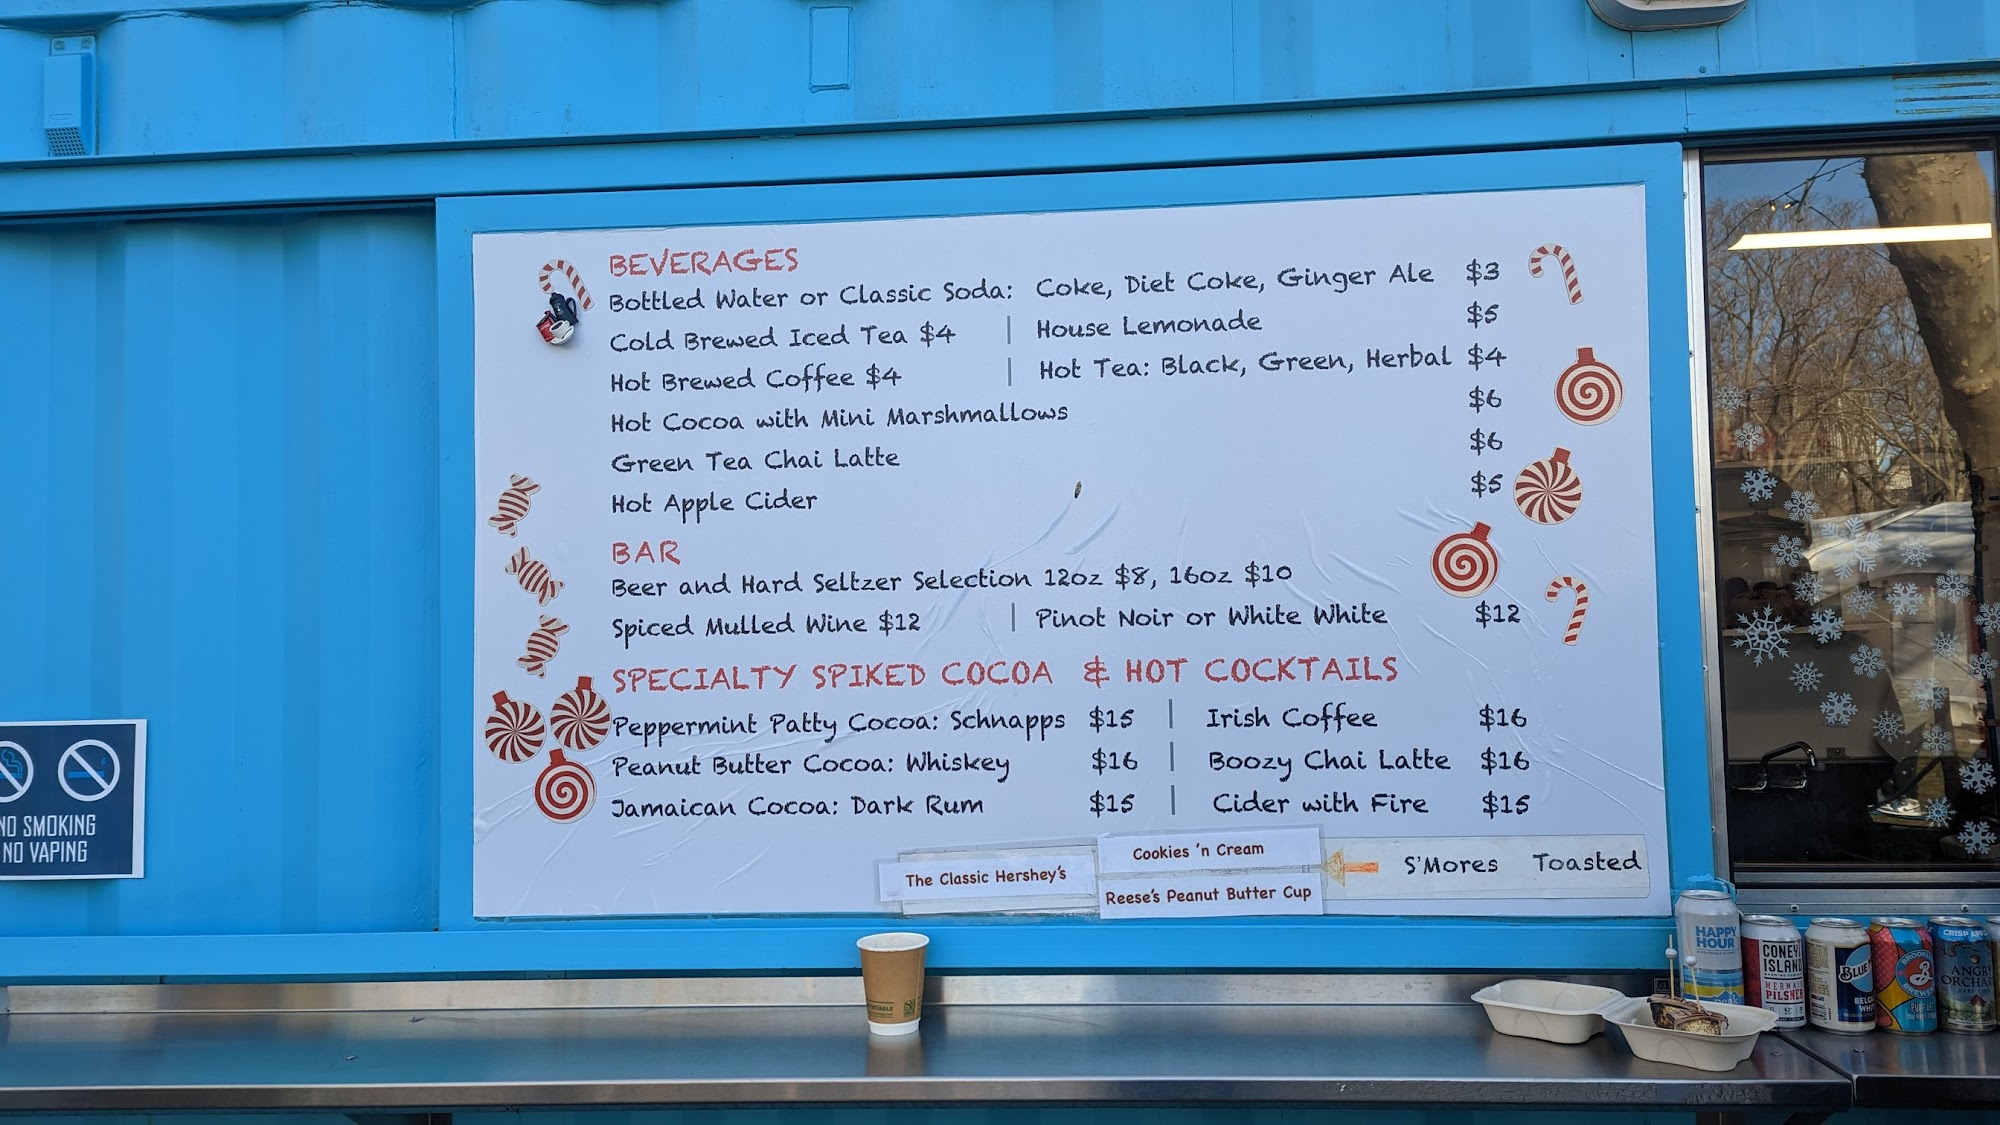 BEVERAGES
Bottled Water or Classic Soda: Coke, Diet Coke, Ginger Ale $3
Cold Brewed Iced Tea $4 | House Lemonade $5
Hot Brewed Coffee $4 | Hot Tea: Black, Green, Herbal $4
Hot Cocoa with Mini Marshmallows $6
Green Tea Chai Latte $6
Hot Apple Cider $5
BAR
Beer and Hard Seltzer Selection 12oz $8, 16oz $10
Spiced Mulled Wine $12 | Pinot Noir or White White $12
SPECIALTY SPIKED COCOA & HOT COCKTAILS
Peppermint Patty Cocoa: Schnapps $15 | Irish Coffee $16
Peanut Butter Cocoa: Whiskey $16 | Boozy Chai Latte $16
Jamaican Cocoa: Dark Rum $15 | Cider with Fire $15
The Classic Hershey's
Cookies 'n Cream
Reese's Peanut Butter Cup
S'Mores Toasted
NO SMOKING
NO VAPING
HAPPY
HOUR
CONEY
ISLAND
MERMAID
PILSNER
BLUE
BROOKLYN
CRISP
ANGRY
ORCHARD